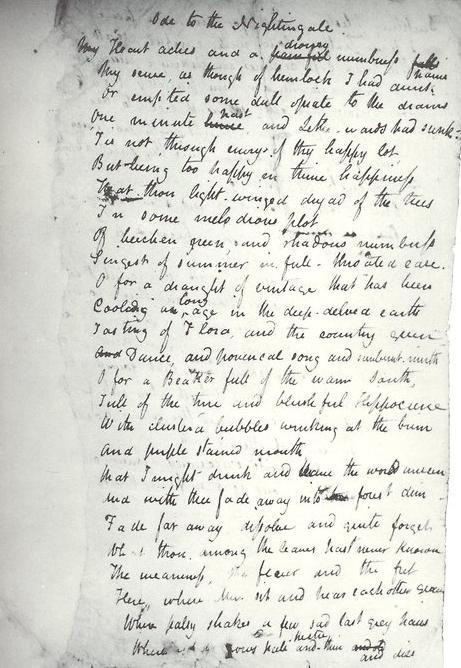 Ode to the Nightingale.
My Heart aches and a drowsy painful numbness falls pains
My sense, as though of hemlock I had drunk
Or emptied some dull opiate to the drains
One minute past and Lethe-wards had sunk.
'Tis not through envy of thy happy lot
But being too happy in thine happiness
That thou light-winged dryad of the trees
In some melodious plot
Of beechen green, and shadows numberless
Singest of summer in full-throated ease.
O for a draught of vintage that has been
Cooling an long age in the deep-delved earth
Tasting of Flora, and the country green
And Dance, and provencal song and sunburnt mirth
O for a Beaker full of the warm South,
Full of the true and blushful Hippocrene
With cluster'd bubbles winking at the brim
And purple stained mouth
that I might drink and leave the world unseen
And with thee fade away into forest dim -
Fade far away dissolve and quite forget
What thou among the leaves hast never known
The weariness, the fever and the fret
Here, where Men sit and hear each other groan
Where palsy shakes a few sad last grey hairs
Where grows pale and thin and dies